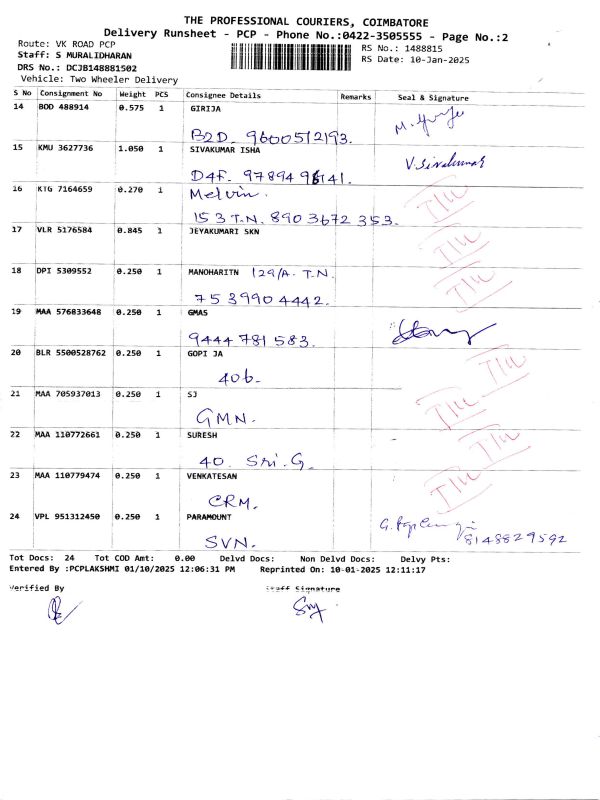 THE PROFESSIONAL COURIERS, COIMBATORE
Delivery Runsheet - PCP - Phone No.:0422-3505555 - Page No.:2
Route: VK ROAD PCP
RS No.: 1488815
Staff: S MURALIDHARAN
RS Date: 10-Jan-2025
DRS No.: DCJB148881502
Vehicle: Two Wheeler Delivery
S No Consignment No Weight PCS Consignee Details Remarks Seal & Signature
14 BOD 488914 0.575 1 GIRIJA
B2D. 9600512193.
15 KMU 3627736 1.050 1 SIVAKUMAR ISHA V.Sivakumar
D4F.
16 KTG 7164659 0.270 1 Melvin.
153 T.N. 8903672353.
17 VLR 5176584 0.845 1 JEYAKUMARI SKN
18 DPI 5309552 0.250 1 MANOHARITN 129/A. T.N.
7539904442.
19 MAA 576833648 0.250 1 GMAS
9444781583.
20 BLR 5500528762 0.250 1 GOPI JA
406.
21 MAA 705937013 0.250 1 SJ
GMN.
22 MAA 110772661 0.250 1 SURESH
40. Sri.G.
23 MAA 110779474 0.250 1 VENKATESAN
CRM.
24 VPL 951312450 0.250 1 PARAMOUNT
SVN. 8148829592
Tot Docs: 24 Tot COD Amt: 0.00 Delvd Docs: Non Delvd Docs: Delvy Pts:
Entered By :PCPLAKSHMI 01/10/2025 12:06:31 PM Reprinted On: 10-01-2025 12:11:17
Verified By Staff Signature